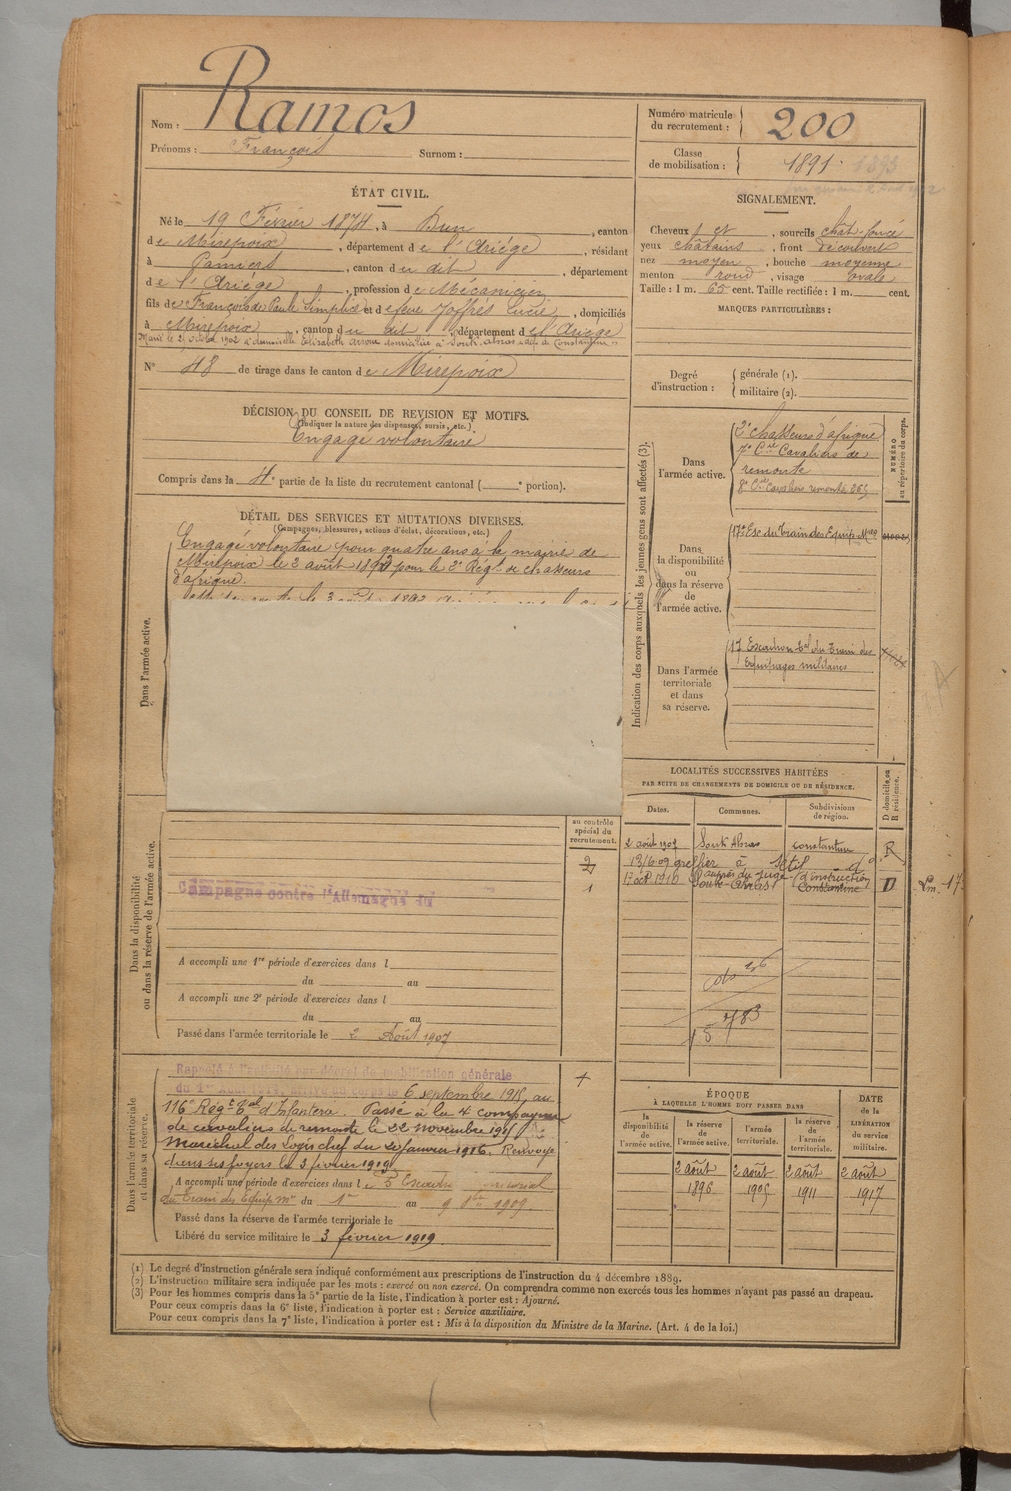 Nom : Ramos
Prénoms : François Surnom :
Numéro matricule du recrutement : 200
Classe de mobilisation : 1891 1893
ÉTAT CIVIL.
Né le 19 Février 1874, à Dun, canton
de Mirepoix, département de l'Ariège, résidant
à Pamiers, canton du dit, département
de l'Ariège, profession de Mécanicien
fils de François de Paule Simplice et de feue Joffrès Lucie, domiciliés
à Mirepoix, canton du dit, département de l'Ariège
Marié le 2 octobre 1902 à demoiselle Elisabeth domiciliée à Souk-Ahras dép. de Constantine
N° 48 de tirage dans le canton de Mirepoix
SIGNALEMENT.
Cheveux et, sourcils chât. foncé
yeux châtains, front découvert
nez moyen, bouche moyenne
menton rond, visage ovale
Taille : 1 m. 65 cent. Taille rectifiée : 1 m. cent.
MARQUES PARTICULIÈRES :
Degré d'instruction : générale (1).
militaire (2).
DÉCISION DU CONSEIL DE REVISION ET MOTIFS.
(Indiquer la nature des dispenses, sursis, etc.)
Engagé volontaire
Compris dans la 4e partie de la liste du recrutement cantonal ( e portion).
DÉTAIL DES SERVICES ET MUTATIONS DIVERSES.
(Campagnes, blessures, actions d'éclat, décorations, etc.)
Dans l'armée active.
Engagé volontaire pour quatre ans à la mairie de
Mirepoix le 2 août 1892 pour le 2e Régt de chasseurs
d'afrique.
Indication des corps auxquels les jeunes gens sont affectés (3).
NUMÉRO au répertoire du corps.
Dans l'armée active.
2e chasseurs d'afrique
7e Cie Cavaliers de
remonte
8e Cie Cavaliers remonte 265
Dans la disponibilité ou dans la réserve de l'armée active.
17e Esc du Train des Equip. Mres
Dans l'armée territoriale et dans sa réserve.
17 Escadron Tal du Train des
Equipages militaires
LOCALITÉS SUCCESSIVES HABITÉES
PAR SUITE DE CHANGEMENTS DE DOMICILE OU DE RÉSIDENCE.
Dates. Communes. Subdivisions de région. D domicile, ou R résidence.
2 août 1907 Souk Ahras Constantine R
13/6 09 greffier à Sétif do
1er oct. 1910 auprès du juge d'instruction
Souk-Ahras Constantine D
Dans la disponibilité ou dans la réserve de l'armée active.
au contrôle spécial du recrutement.
2
1
Campagne contre l'Allemagne du
A accompli une 1re période d'exercices dans l
du au
A accompli une 2e période d'exercices dans l
du au
Passé dans l'armée territoriale le 2 Août 1907
783
Dans l'armée territoriale et dans sa réserve.
Rappelé à l'activité par décret de mobilisation générale
du 1er Août 1914. Arrivé au corps le 6 septembre 1915, au
116e Régt Tal d'Infanterie. Passé à la 4e compagnie
de cavaliers de remonte le 22 novembre 1915
Maréchal des Logis chef du 20 Janvier 1916. Renvoyé
dans ses foyers le 3 février 1919
A accompli une période d'exercices dans le 5 Escadron territorial
du Train des Equip. Mres du 1er au 9 1909
Passé dans la réserve de l'armée territoriale le
Libéré du service militaire le 3 février 1919.
ÉPOQUE
À LAQUELLE L'HOMME DOIT PASSER DANS
la disponibilité de l'armée active. la réserve de l'armée active. l'armée territoriale. la réserve de l'armée territoriale.
DATE de la LIBÉRATION du service militaire.
2 août 2 août 2 août 2 août
1896 1905 1911 1917
(1) Le degré d'instruction générale sera indiqué conformément aux prescriptions de l'instruction du 4 décembre 1889.
(2) L'instruction militaire sera indiquée par les mots : exercé ou non exercé. On comprendra comme non exercés tous les hommes n'ayant pas passé au drapeau.
(3) Pour les hommes compris dans la 5e partie de la liste, l'indication à porter est : Ajourné.
Pour ceux compris dans la 6e liste, l'indication à porter est : Service auxiliaire.
Pour ceux compris dans la 7e liste, l'indication à porter est : Mis à la disposition du Ministre de la Marine. (Art. 4 de la loi.)